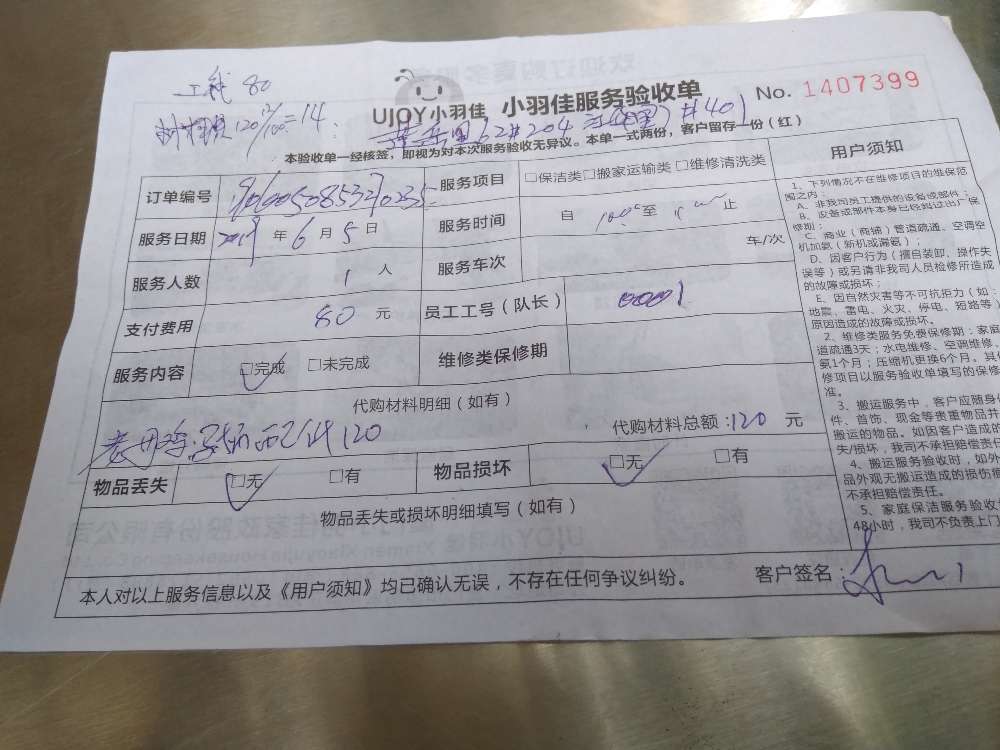 工钱 80
UJOY小羽佳 小羽佳服务验收单 No. 1407399
本验收单一经核签，即视为对本次服务验收无异议。本单一式两份，客户留存一份（红）
订单编号
服务项目 □保洁类□搬家运输类□维修清洗类
服务日期 2019 年 6 月 5 日
服务时间 自 至 止
服务人数 1 人
服务车次 车/次
支付费用 80 元
员工工号（队长） 00001
服务内容 □完成 □未完成
维修类保修期
代购材料明细（如有）
120 代购材料总额：120 元
物品丢失 □无 □有
物品损坏 □无 □有
物品丢失或损坏明细填写（如有）
本人对以上服务信息以及《用户须知》均已确认无误，不存在任何争议纠纷。 客户签名：
用户须知
1、下列情况不在维修项目的维保范
围之内：
A、非我司员工提供的设备或部件；
B、设备或部件本身已经超过出厂保
修期；
C、商业（商铺）管道疏通、空调空
机加氨（新机或漏氨）；
D、因客户行为（擅自装卸、操作失
误等）或另请非我司人员检修所造成
的故障或损坏；
E、因自然灾害等不可抗拒力（如：
地震、雷电、火灾、停电、短路等）
原因造成的故障或损坏。
2、维修类服务免费保修期：家庭
道疏通3天；水电维修、空调维修，
氨1个月；压缩机更换6个月。其
修项目以服务验收单填写的保修
准。
3、搬运服务中，客户应随身
件、首饰、现金等贵重物品并
搬运的物品。如因客户造成的
失/损坏，我司不承担赔偿责任
4、搬运服务验收时，如外
品外观无搬运造成的损伤
不承担赔偿责任。
5、家庭保洁服务验收
48小时，我司不负责上门